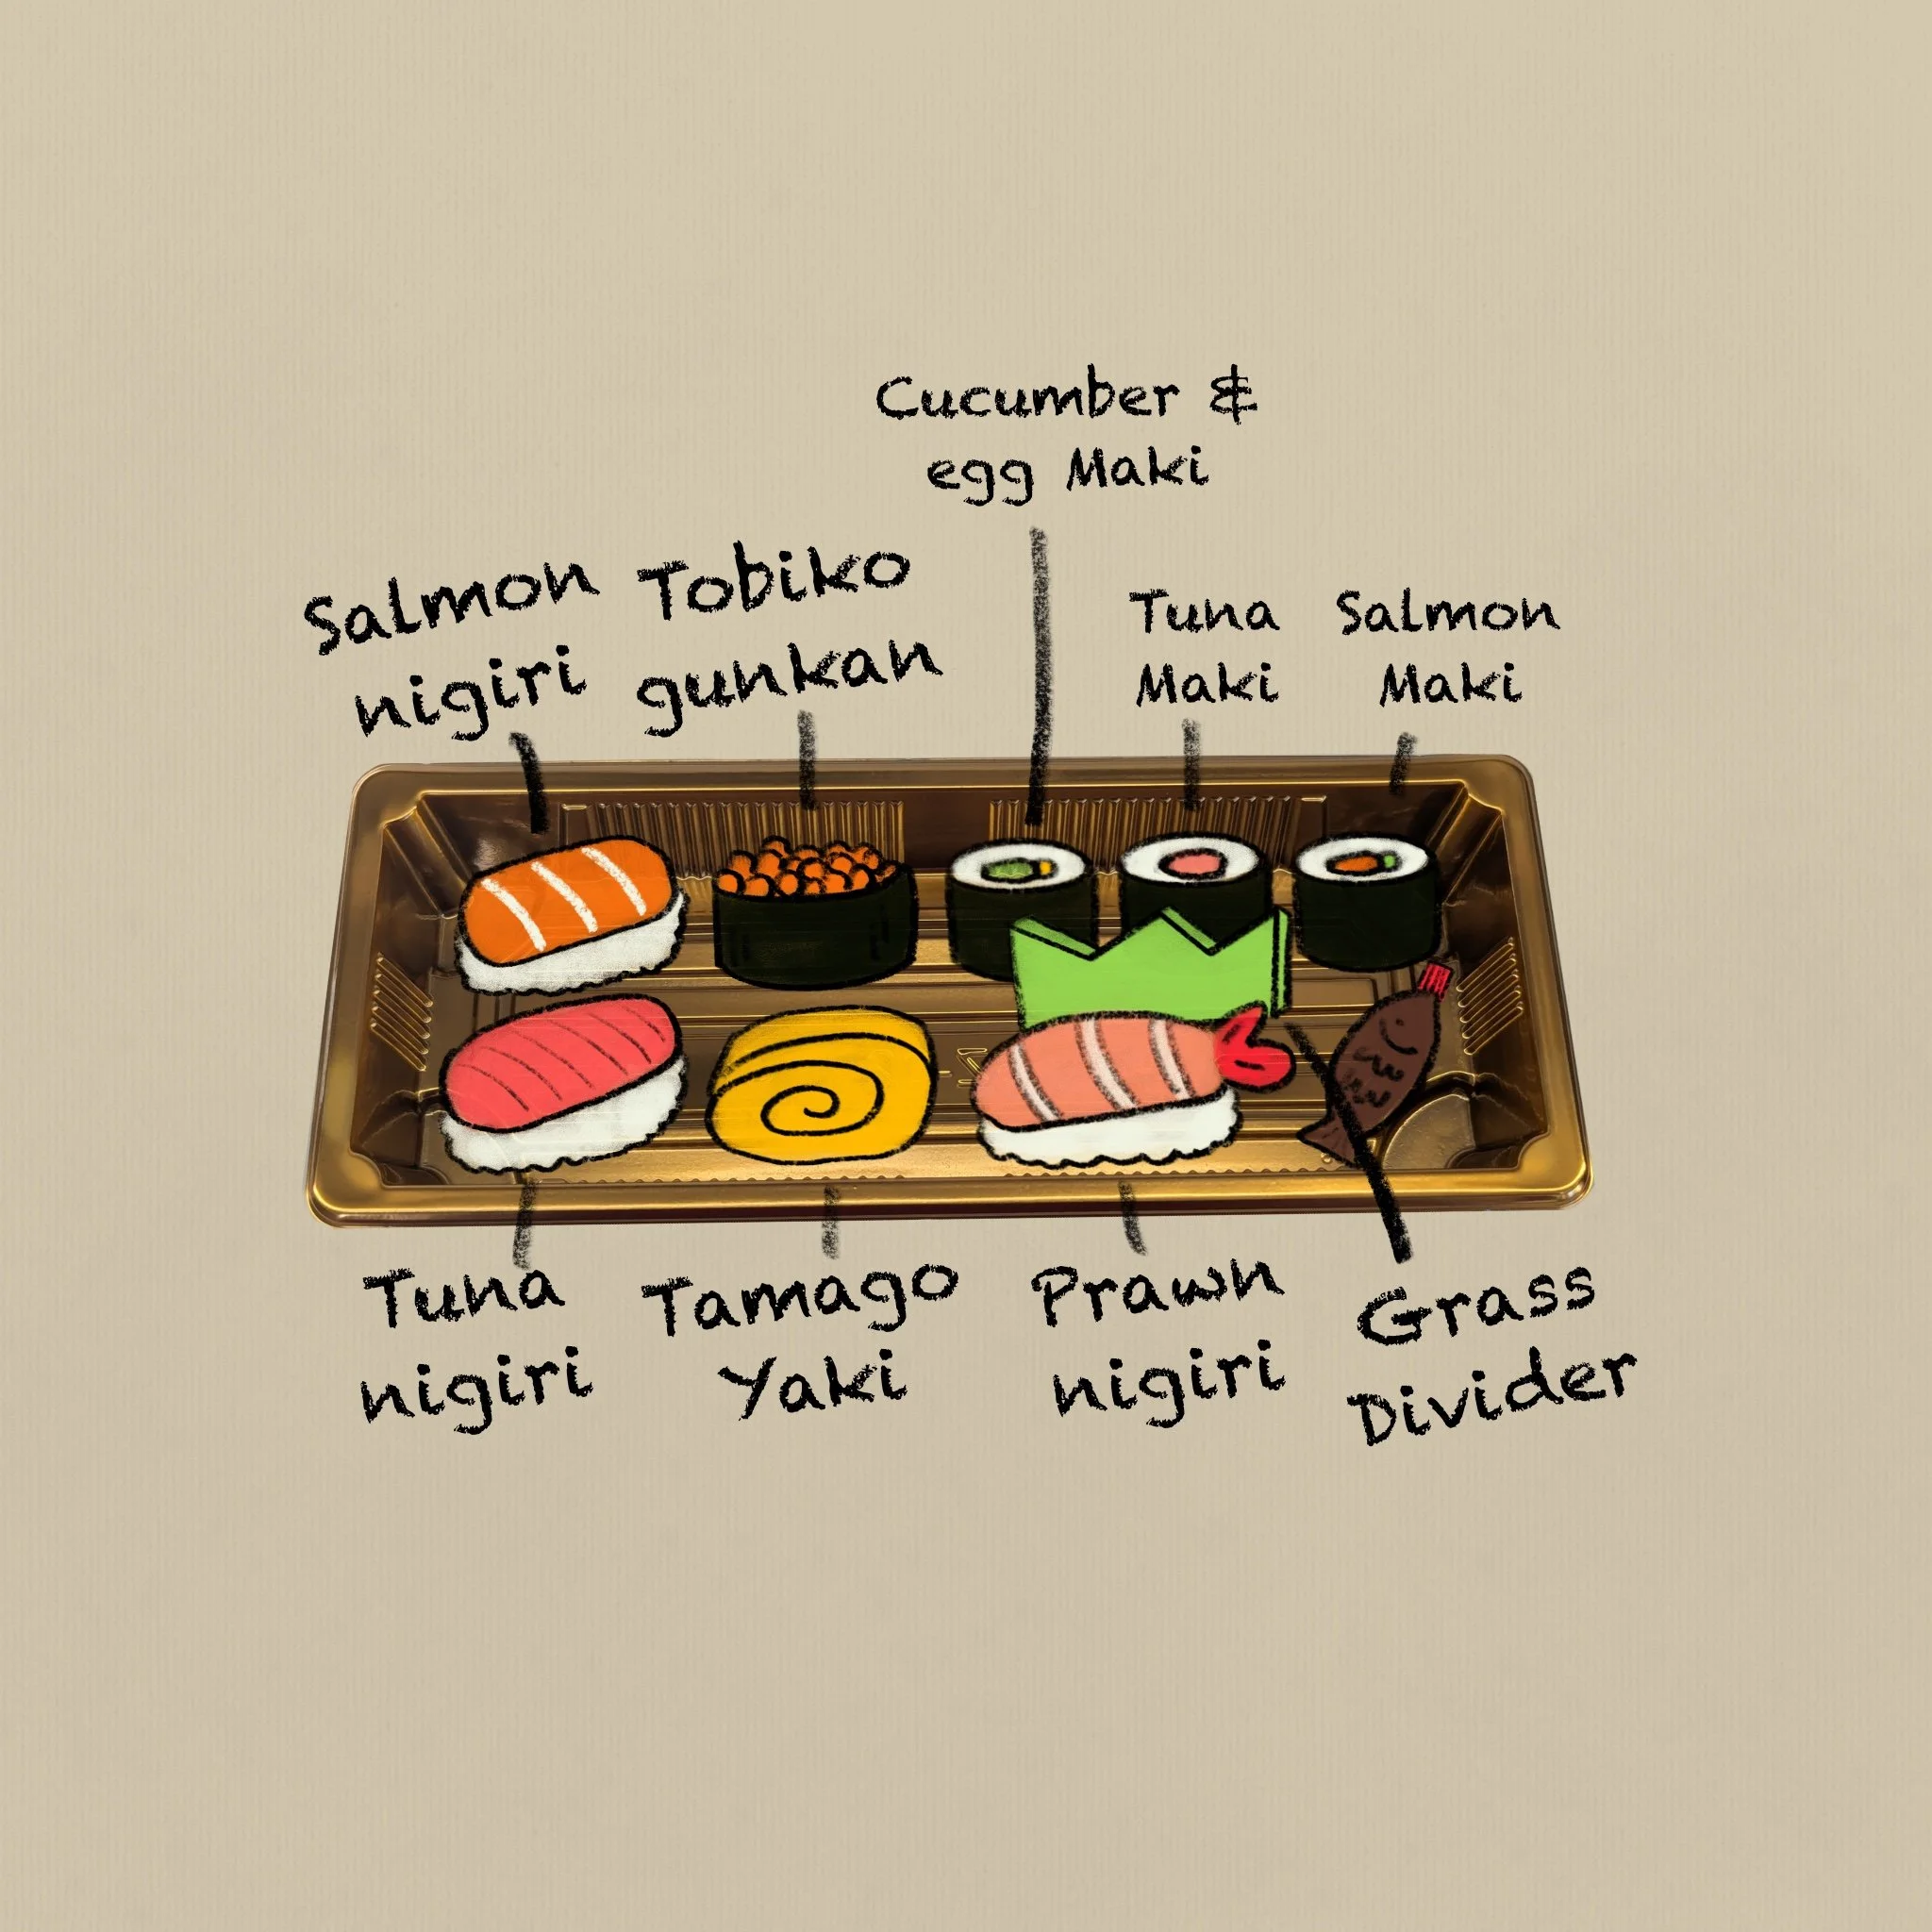 Cucumber &
egg Maki
Salmon
nigiri
Tobiko
gunkan
Tuna
Maki
Salmon
Maki
Tuna
nigiri
Tamago
Yaki
Prawn
nigiri
Grass
Divider